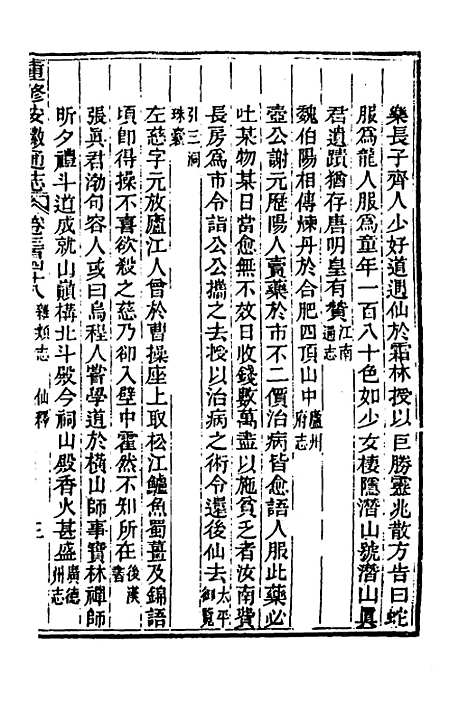 樂長子齊人少好道遇仙於霜林授以巨勝靈兆散方告曰蛇
服爲龍人服爲童年一百八十色如少女棲隱潛山號潛山眞
君遺蹟猶存唐明皇有贊江南通志
魏伯陽相傳煉丹於合肥四頂山中廬州府志
壺公謝元歷陽人賣藥於市不二價治病皆愈語人服此藥必
吐某物某日當愈無不效日收錢數萬盡以施貧乏者汝南費
長房爲市令詣公公攜之去授以治病之術令還後仙去太平御覽
引三洞珠嚢
左慈字元放廬江人曾於曹操座上取松江鱸魚蜀薑及錦語
頃卽得操不喜欲殺之慈乃卻入壁中霍然不知所在後漢書
張眞君渤句容人或曰烏程人嘗學道於橫山師事寶林禪師
昕夕禮斗道成就山巔構北斗殿今祠山殿香火甚盛廣德州志
重修安徽通志 卷三百四十八 雜類志 仙釋 三